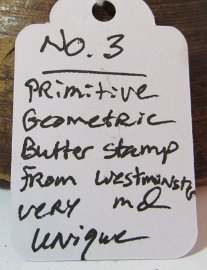 No. 3
Primitive
Geometric
Butter stamp
from Westminster
very md
unique